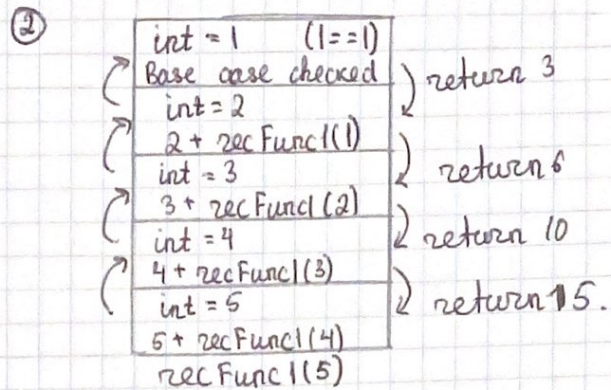 2
int = 1 (1==1)
Base case checked
return 3
int = 2
2 + recFunc1(1)
return 6
int = 3
3 + recFunc1(2)
return 10
int = 4
4 + recFunc1(3)
return 15.
int = 5
5 + recFunc1(4)
recFunc1(5)